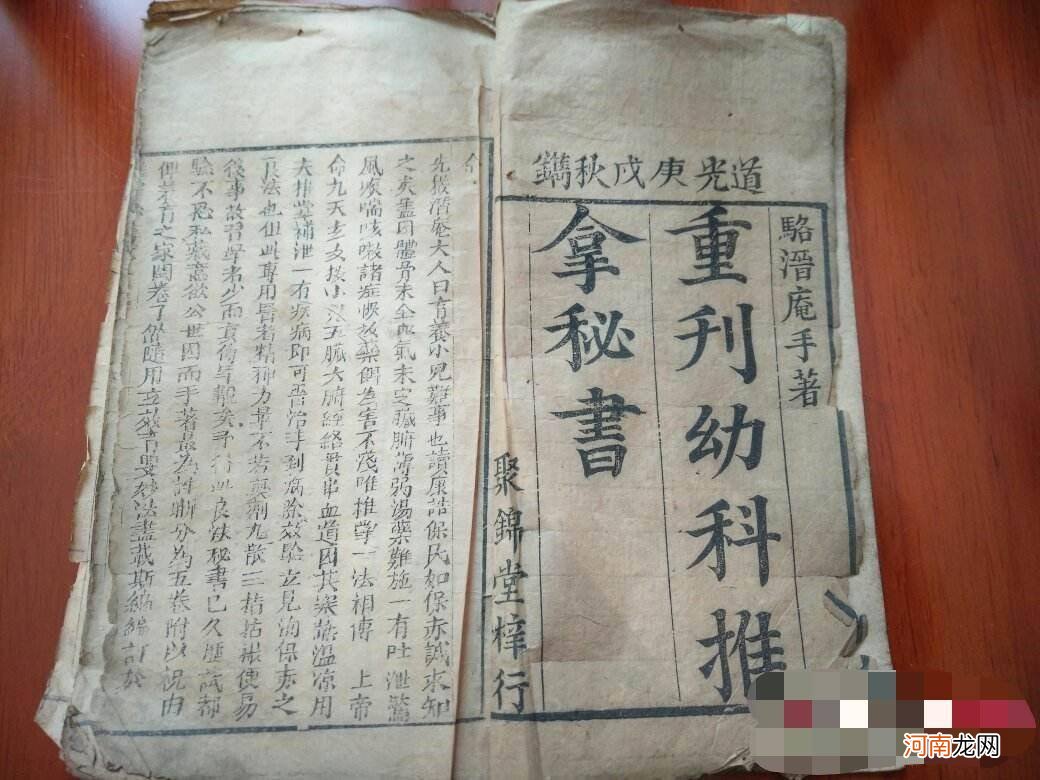 道光庚戌秋鐫
駱潛庵手著
重刊幼科推
拿秘書
聚錦堂梓行
大人曰育養小兒難事也讀康誥保民如保赤誠求知
之矣盖因體骨未全血氣未定臟腑薄弱湯藥難施一有吐泄驚
風痰喘咳嗽諸症悮投藥餌為害不淺唯推拿一法相傳 上帝
命九天玄女按小兒五臟六腑經絡貫串血道因其寒熱温凉用
夫推拿補泄一有疾病即可醫治手到病除效驗立見洵保赤之
良法也但此專用醫者精神力量不若煎劑丸散三指拈撮便易
後事故習學者少而真傳罕覯矣予得此良法秘書已久歷試都
驗不忍私藏意欲公世因而手著最為詳晰分為五卷附以祝由
俾養育之家開卷了然隨用立效育嬰妙法盡載斯編編訂於
河南龙网